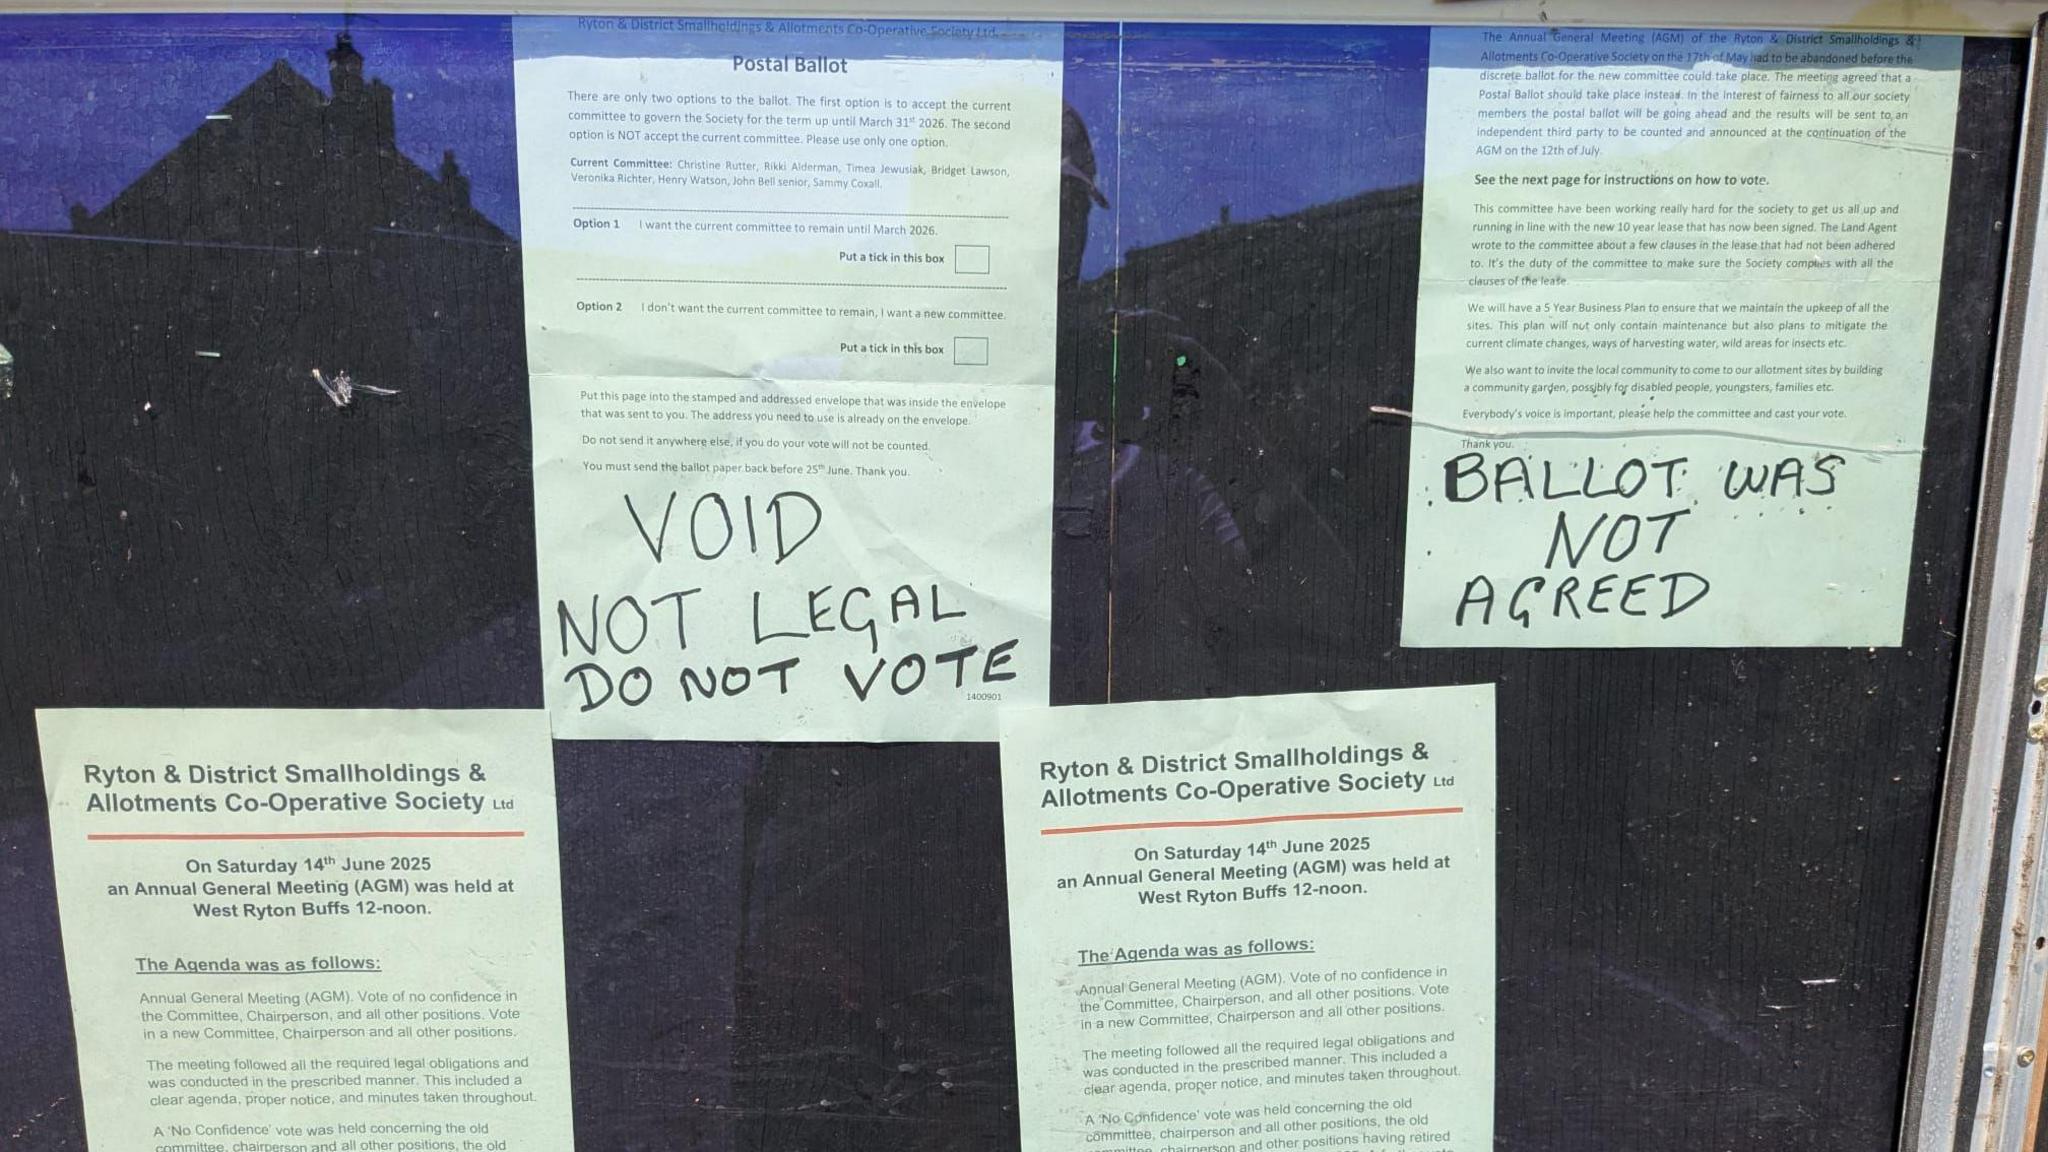 Ryton & District Smallholdings & Allotments Co-Operative Society Ltd.
Postal Ballot
There are only two options to the ballot. The first option is to accept the current
committee to govern the Society for the term up until March 31st 2026. The second
option is NOT accept the current committee. Please use only one option.
Current Committee: Christine Rutter, Rikki Alderman, Timea Jewusiak, Bridget Lawson,
Veronika Richter, Henry Watson, John Bell senior, Sammy Coxall.
Option 1 I want the current committee to remain until March 2026.
Put a tick in this box
Option 2 I don't want the current committee to remain, I want a new committee.
Put a tick in this box
Put this page into the stamped and addressed envelope that was inside the envelope
that was sent to you. The address you need to use is already on the envelope.
Do not send it anywhere else, if you do your vote will not be counted.
You must send the ballot paper back before 25th June. Thank you.
VOID
NOT LEGAL
DO NOT VOTE
1400901
The Annual General Meeting (AGM) of the Ryton & District Smallholdings &
Allotments Co-Operative Society on the 17th of May had to be abandoned before the
discrete ballot for the new committee could take place. The meeting agreed that a
Postal Ballot should take place instead. In the interest of fairness to all our society
members the postal ballot will be going ahead and the results will be sent to an
independent third party to be counted and announced at the continuation of the
AGM on the 12th of July.
See the next page for instructions on how to vote.
This committee have been working really hard for the society to get us all up and
running in line with the new 10 year lease that has now been signed. The Land Agent
wrote to the committee about a few clauses in the lease that had not been adhered
to. It's the duty of the committee to make sure the Society complies with all the
clauses of the lease.
We will have a 5 Year Business Plan to ensure that we maintain the upkeep of all the
sites. This plan will not only contain maintenance but also plans to mitigate the
current climate changes, ways of harvesting water, wild areas for insects etc.
We also want to invite the local community to come to our allotment sites by building
a community garden, possibly for disabled people, youngsters, families etc.
Everybody's voice is important, please help the committee and cast your vote.
Thank you.
BALLOT WAS
NOT
AGREED
Ryton & District Smallholdings &
Allotments Co-Operative Society Ltd
On Saturday 14th June 2025
an Annual General Meeting (AGM) was held at
West Ryton Buffs 12-noon.
The Agenda was as follows:
Annual General Meeting (AGM). Vote of no confidence in
the Committee, Chairperson, and all other positions. Vote
in a new Committee, Chairperson and all other positions.
The meeting followed all the required legal obligations and
was conducted in the prescribed manner. This included a
clear agenda, proper notice, and minutes taken throughout.
A 'No Confidence' vote was held concerning the old
committee, chairperson and all other positions, the old
Ryton & District Smallholdings &
Allotments Co-Operative Society Ltd
On Saturday 14th June 2025
an Annual General Meeting (AGM) was held at
West Ryton Buffs 12-noon.
The Agenda was as follows:
Annual General Meeting (AGM). Vote of no confidence in
the Committee, Chairperson, and all other positions. Vote
in a new Committee, Chairperson and all other positions.
The meeting followed all the required legal obligations and
was conducted in the prescribed manner. This included a
clear agenda, proper notice, and minutes taken throughout.
A 'No Confidence' vote was held concerning the old
committee, chairperson and all other positions, the old
committee, chairperson and other positions having retired